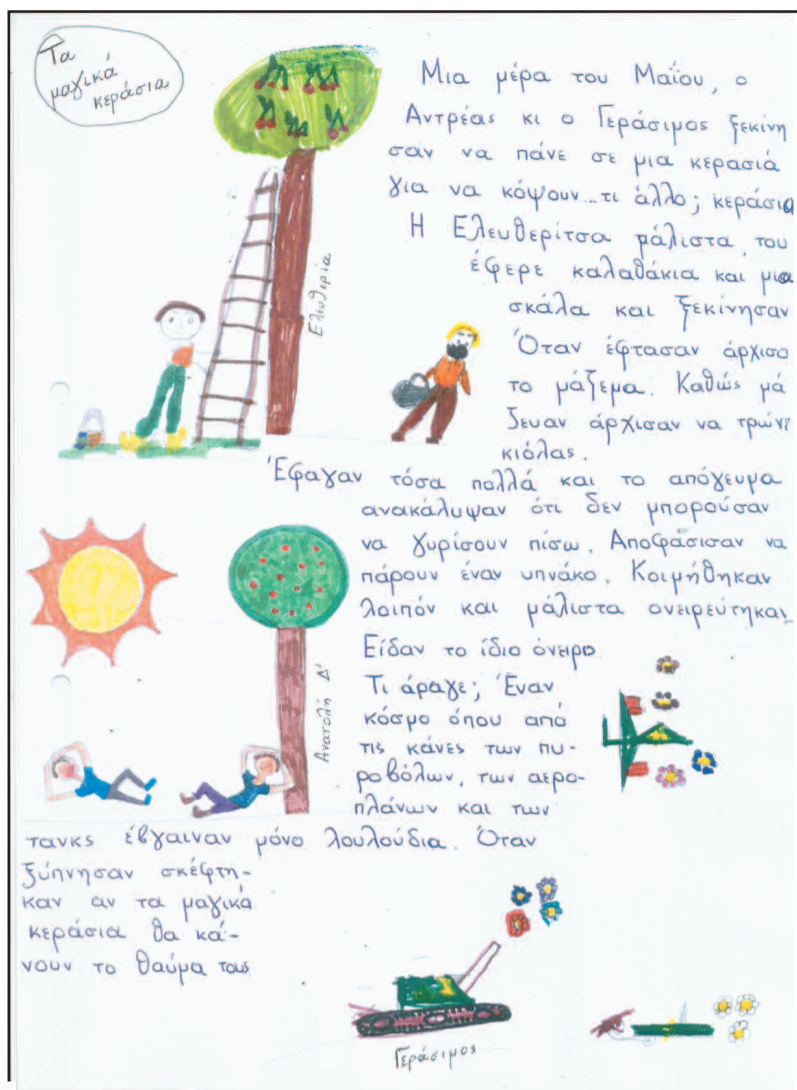 Τα
μαγικά
κεράσια
Μια μέρα του Μαΐου, ο
Αντρέας κι ο Γεράσιμος ξεκίνη
σαν να πάνε σε μια κερασιά
για να κόψουν...τι άλλο; κεράσια
Η Ελευθερίτσα μάλιστα του
έφερε καλαθάκια και μια
σκάλα και ξεκίνησαν
Όταν έφτασαν άρχισα
το μάζεμα. Καθώς μά
ζευαν άρχισαν να τρών
κιόλας.
Ελευθερία
Έφαγαν τόσα πολλά και το απόγευμα
ανακάλυψαν ότι δεν μπορούσαν
να γυρίσουν πίσω. Αποφάσισαν να
πάρουν έναν υπνάκο. Κοιμήθηκαν
λοιπόν και μάλιστα ονειρεύτηκαν
Είδαν το ίδιο όνειρο
Τι άραγε; Έναν
κόσμο όπου από
τις κάνες των πυ-
ροβόλων, των αερο-
πλάνων και των
Ανατολή Δ'
τανκς έβγαιναν μόνο λουλούδια. Όταν
ξύπνησαν σκέφτη-
καν αν τα μαγικά
κεράσια θα κά-
νουν το θαύμα τους
Γεράσιμος